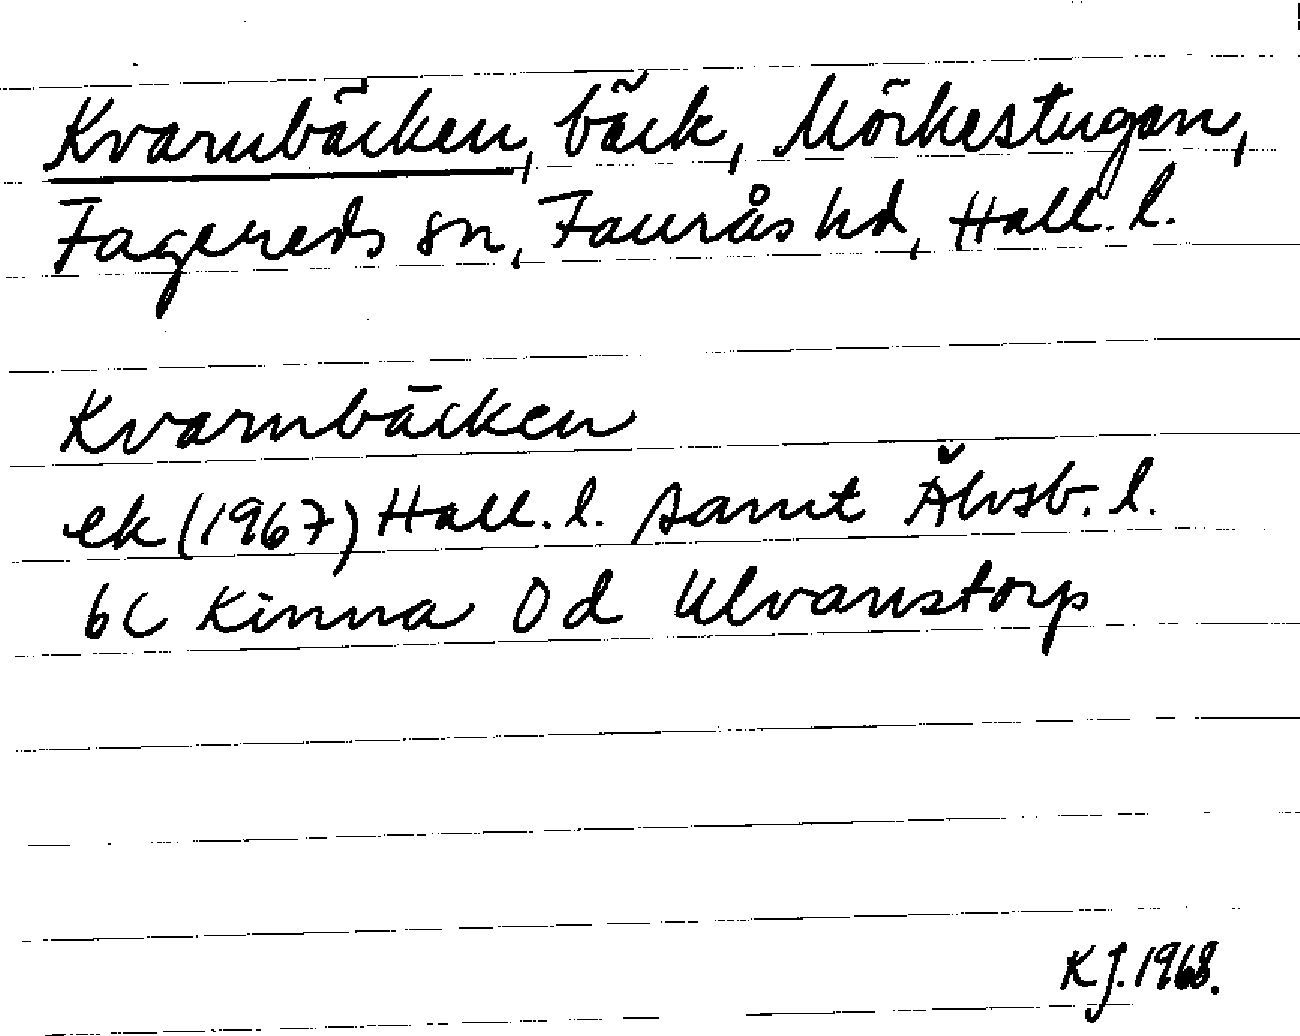 Kvarnbäcken, bäck, Mörkestugan,
Fagereds sn, Faurås hd, Hall. l.
Kvarnbäcken
ek (1967) Hall. l. samt Älvsb. l.
6C Kinna 0d Ulvanstorp
KJ. 1968.